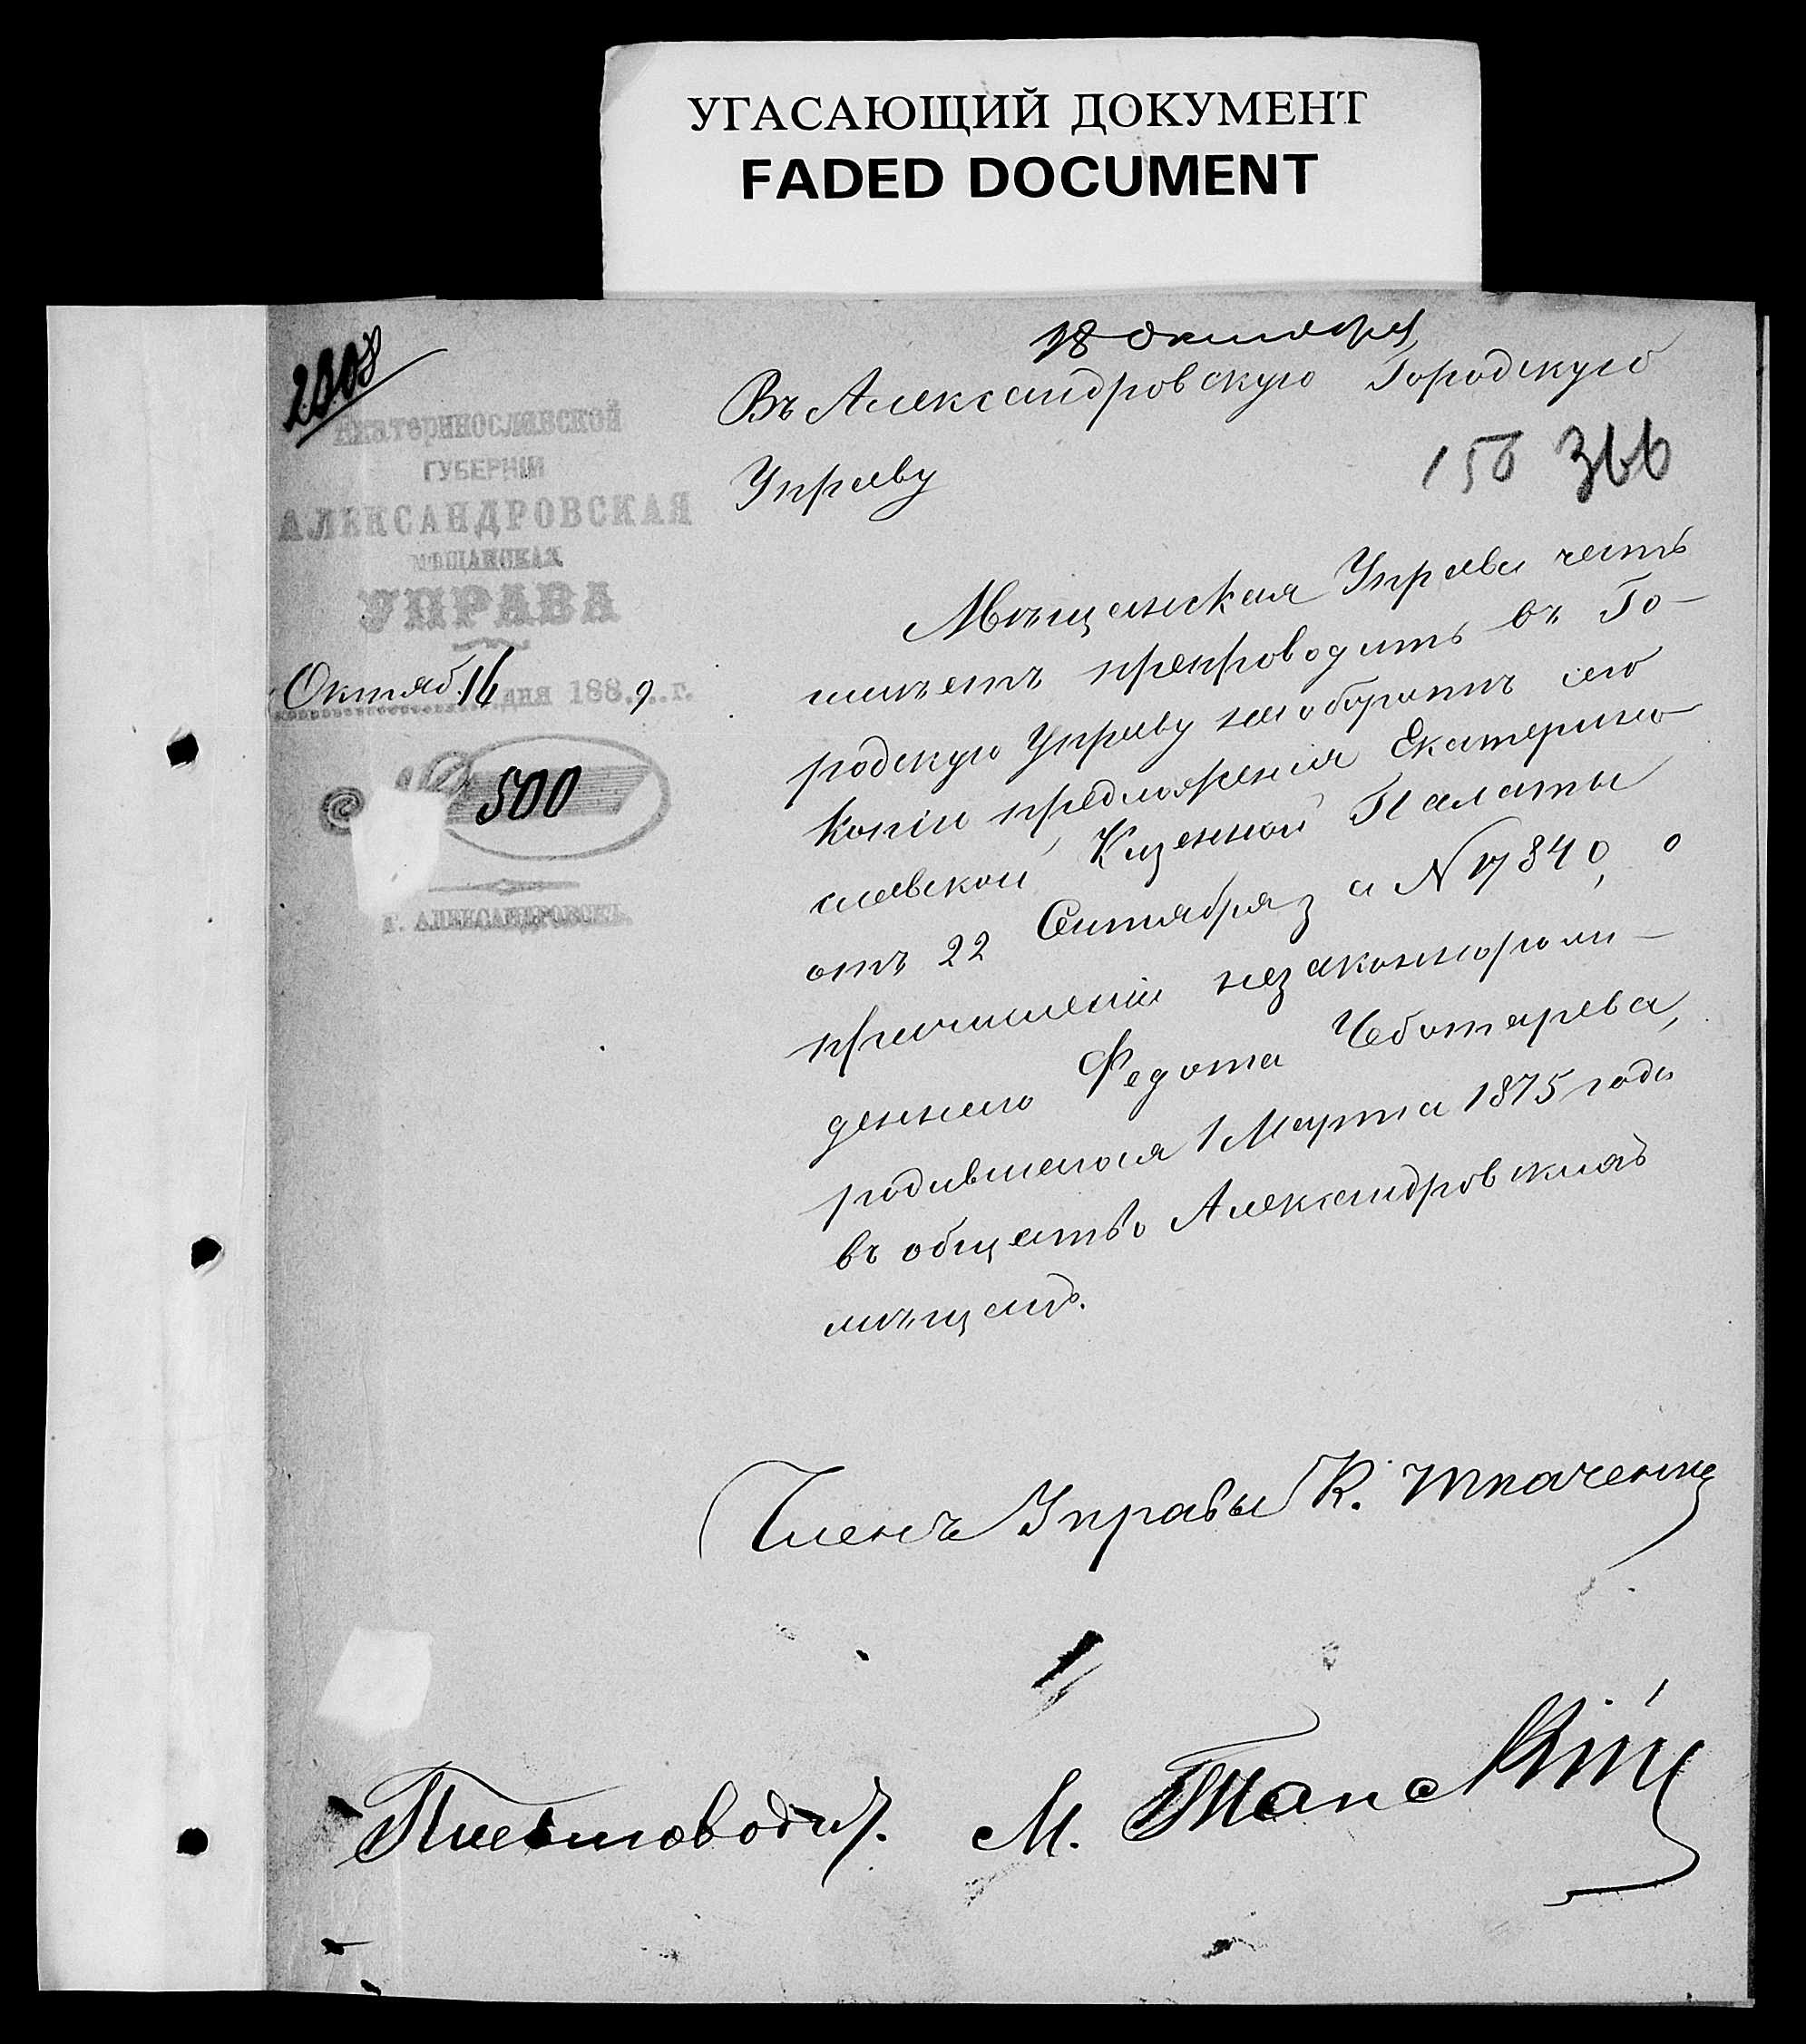 УГАСАЮЩИЙ ДОКУМЕНТ
FADED DOCUMENT
18 октября
2508
Екатеринославской
ГУБЕРНІИ
АЛЕКСАНДРОВСКАЯ
МѢЩАНСКАЯ
УПРАВА
Октяб. 16 дня 1889 г.
500
г. АЛЕКСАНДРОВСКЪ.
Въ Александровскую Городскую
Управу
366
Мѣщанская Управа честь
имѣетъ препроводить въ Го-
родскую Управу на оборотѣ сего
копію предложенія Екатерино
славской Казенной Палаты
отъ 22 Сентября за N 17840, о
причисленіи незаконнорож-
деннаго Федота Чеботарева,
родившагося 1 Марта 1875 года
въ общество Александровскихъ
мѣщанъ.
Членъ Управы К. Ткаченко
Письмоводит. М.